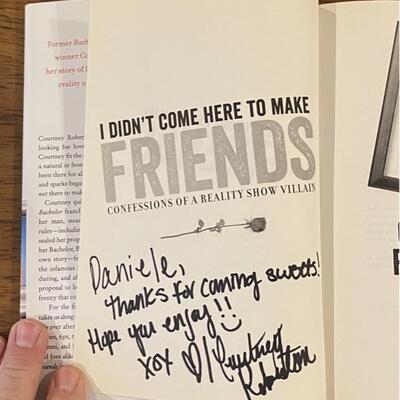 Former Bach
winner Co
her story of l
reality o
Courtney Rober
looking for love
Courtney fit the
a natural in fron
been there for al
and sparks began
not there to make
Courtney qui
Bachelor franch
her man, steam
rules—including
sealed her propo
her Bachelor, B
own story—fr
the infamous
during, and af
proposal to h
frenzy that co
For the
takes us along
ly ever after
ies, tips, t
and foes alik
friends
I DIDN'T COME HERE TO MAKE
FRIENDS
CONFESSIONS OF A REALITY SHOW VILLAIN
Daniele,
thanks for coming sweets!
Hope you enjoy!!
xox ♡/ Courtney
Robertson